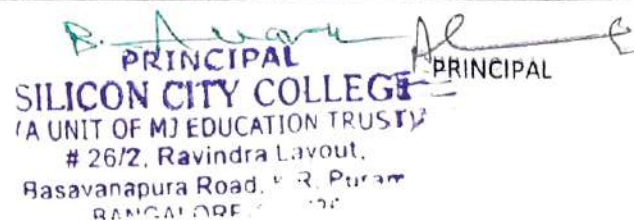 B.
PRINCIPAL PRINCIPAL
SILICON CITY COLLEGE
(A UNIT OF MJ EDUCATION TRUST)
# 26/2, Ravindra Layout,
Basavanapura Road, K.R. Puram
BANGALORE